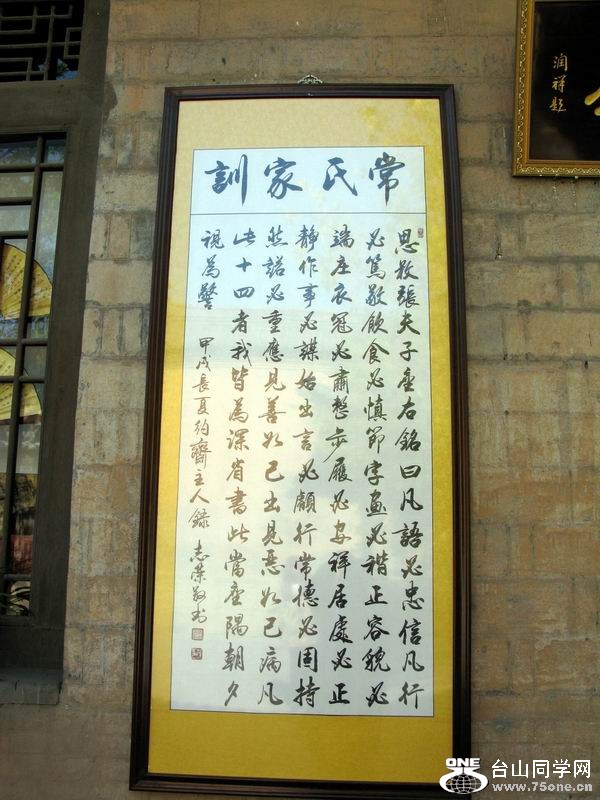 常氏家訓
思叔張夫子座右銘曰凡語必忠信凡行
必篤敬飲食必慎節字畫必楷正容貌必
端庄衣冠必肅整步履必安祥居處必正
靜作事必謀始出言必顧行常德必固持
然諾必重應見善如己出見惡如己病凡
此十四者我皆為深省書此當座隅朝夕
視為警 甲戌長夏約齋主人錄 志榮敬书
潤祥題
ONE 台山同学网
www.75one.cn